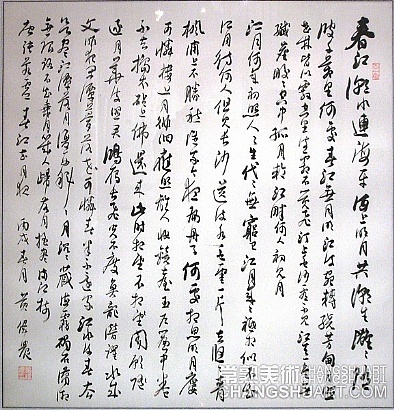 春江潮水連海平海上明月共潮生灩灩隨
波千萬里何處春江無月明江流宛轉繞芳甸月照
花林皆似霰空里流霜不覺飛汀上白沙看不見江天一色無
纖塵皎皎空中孤月輪江畔何人初見月
江月何年初照人人生代代無窮已江月年年祇相似不知
江月待何人但見長江送流水白雲一片去悠悠青
楓浦上不勝愁誰家今夜扁舟子何處相思明月樓
可憐樓上月徘徊應照離人妝鏡臺玉戶簾中卷
不去搗衣砧上拂還來此時相望不相聞願
逐月華流照君鴻雁長飛光不度魚龍潛躍水成
文昨夜閒潭夢落花可憐春半不還家江水流春去
欲盡江潭落月復西斜斜月沉沉藏海霧碣石瀟湘
無限路不知乘月幾人歸落月搖情滿江樹
唐張若虛春江花月夜 丙戌春月